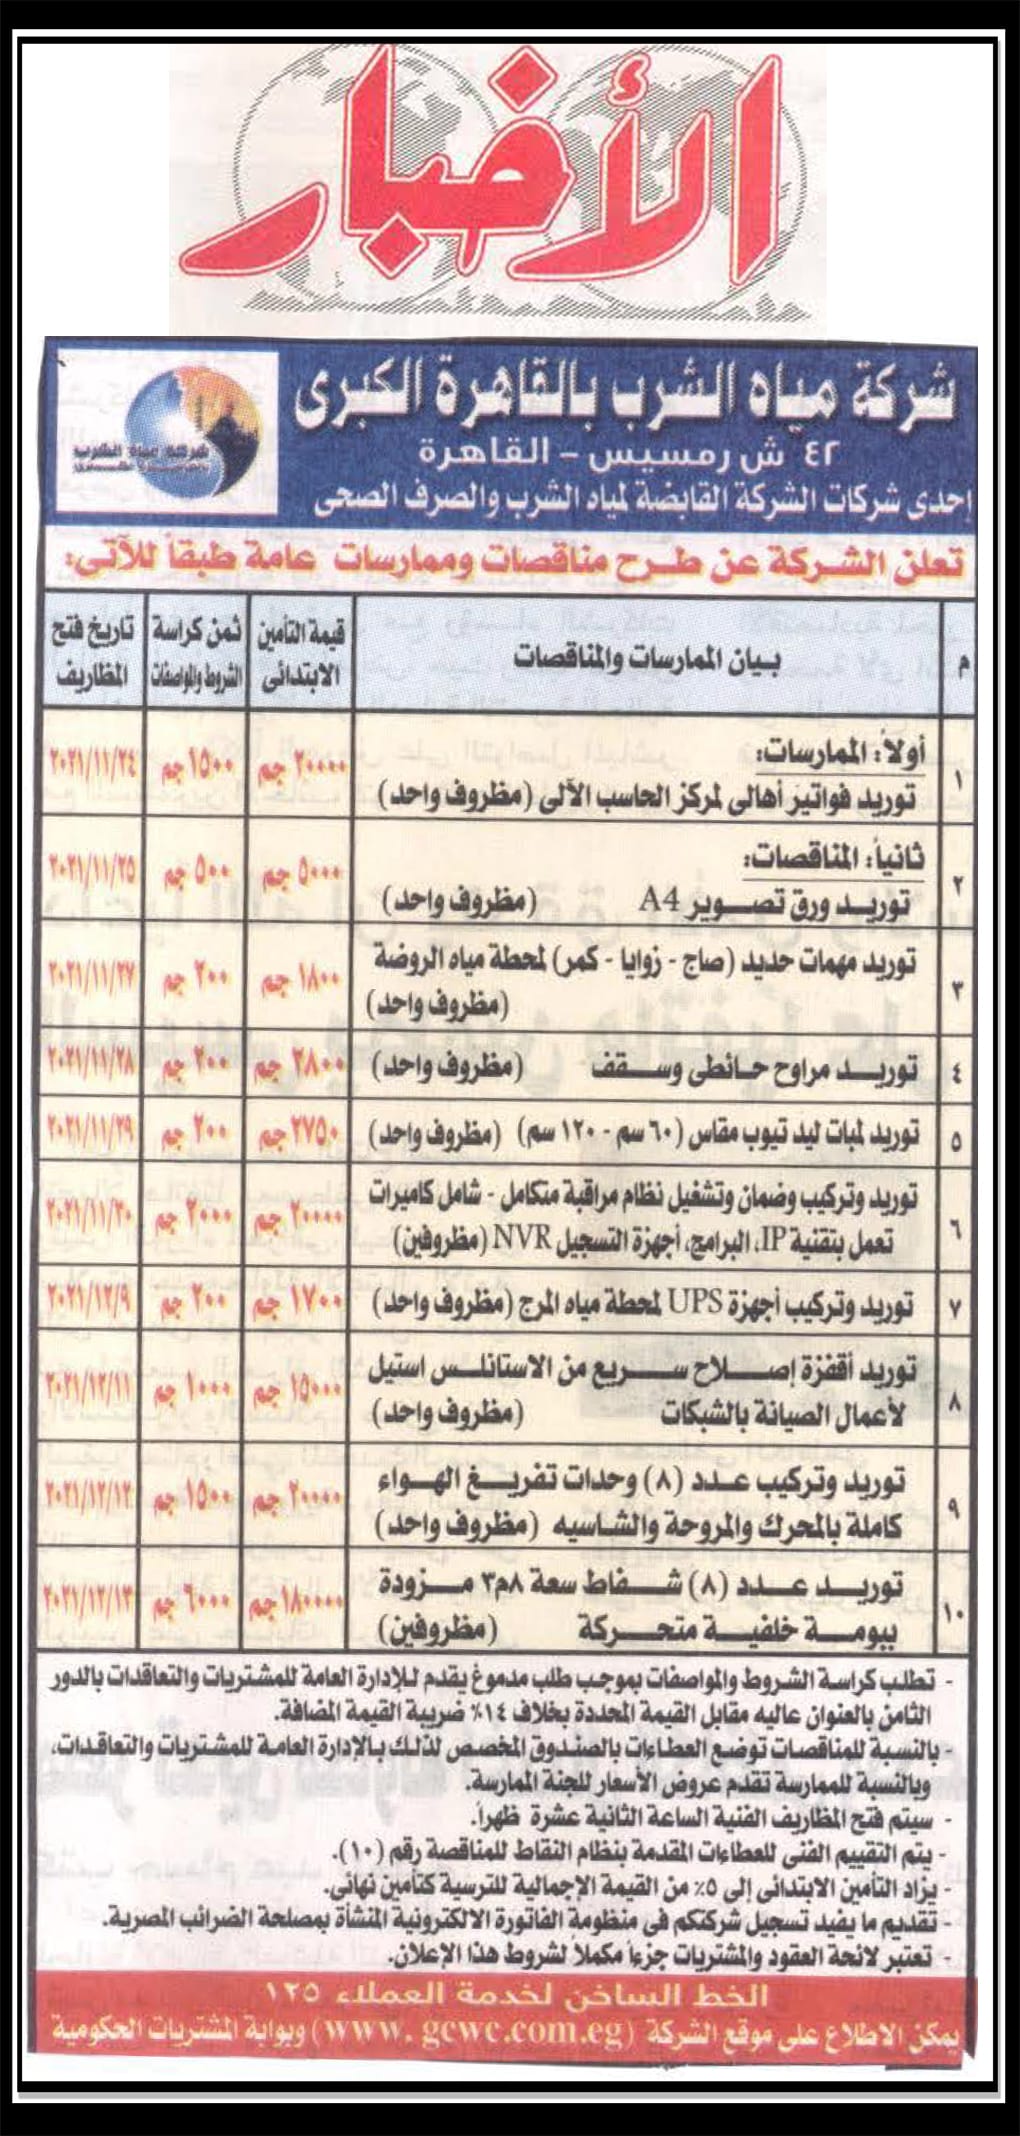 الأخبار
شركة مياه الشرب بالقاهرة الكبرى
٤٢ ش رمسيس - القاهرة
إحدى شركات الشركة القابضة لمياه الشرب والصرف الصحى
شركة مياه الشرب
تعلن الشركة عن طرح مناقصات وممارسات عامة طبقاً للآتى:
م | بيان الممارسات والمناقصات | قيمة التأمين الابتدائى | ثمن كراسة الشروط والمواصفات | تاريخ فتح المظاريف
أولاً: الممارسات:
١ | توريد فواتير أهالى لمركز الحاسب الآلى (مظروف واحد) | ٢٠٠٠٠ جم | ١٥٠٠ جم | ٢٠٢١/١١/٢٤
ثانياً: المناقصات:
٢ | توريد ورق تصوير A4 (مظروف واحد) | ٥٠٠٠ جم | ٥٠٠ جم | ٢٠٢١/١١/٢٥
٣ | توريد مهمات حديد (صاج - زوايا - كمر) لمحطة مياه الروضة
(مظروف واحد) | ١٨٠٠ جم | ٢٠٠ جم | ٢٠٢١/١١/٢٧
٤ | توريد مراوح حائطى وسقف (مظروف واحد) | ٢٨٠٠ جم | ٢٠٠ جم | ٢٠٢١/١١/٢٨
٥ | توريد لمبات ليد تيوب مقاس (٦٠ سم - ١٢٠ سم) (مظروف واحد) | ٢٧٥٠ جم | ٢٠٠ جم | ٢٠٢١/١١/٢٩
٦ | توريد وتركيب وضمان وتشغيل نظام مراقبة متكامل - شامل كاميرات
تعمل بتقنية IP، البرامج، أجهزة التسجيل NVR (مظروفين) | ٢٠٠٠٠ جم | ٢٠٠٠ جم | ٢٠٢١/١١/٣٠
٧ | توريد وتركيب أجهزة UPS لمحطة مياه المرج (مظروف واحد) | ١٧٠٠ جم | ٢٠٠ جم | ٢٠٢١/١٢/٩
٨ | توريد أقفزة إصلاح سريع من الاستانلس استيل
لأعمال الصيانة بالشبكات (مظروف واحد) | ١٥٠٠٠ جم | ١٠٠٠ جم | ٢٠٢١/١٢/١١
٩ | توريد وتركيب عدد (٨) وحدات تفريغ الهواء
كاملة بالمحرك والمروحة والشاسيه (مظروف واحد) | ٢٠٠٠٠ جم | ١٥٠٠ جم | ٢٠٢١/١٢/١٢
١٠ | توريد عدد (٨) شفاط سعة ٨م٣ مزودة
ببومة خلفية متحركة (مظروفين) | ١٨٠٠٠٠ جم | ٦٠٠٠ جم | ٢٠٢١/١٢/١٣
- تطلب كراسة الشروط والمواصفات بموجب طلب مدموغ يقدم للإدارة العامة للمشتريات والتعاقدات بالدور
الثامن بالعنوان عاليه مقابل القيمة المحددة بخلاف ١٤٪ ضريبة القيمة المضافة.
- بالنسبة للمناقصات توضع العطاءات بالصندوق المخصص لذلك بالإدارة العامة للمشتريات والتعاقدات،
وبالنسبة للممارسة تقدم عروض الأسعار للجنة الممارسة.
- سيتم فتح المظاريف الفنية الساعة الثانية عشرة ظهراً.
- يتم التقييم الفنى للعطاءات المقدمة بنظام النقاط للمناقصة رقم (١٠).
- يزاد التأمين الابتدائى إلى ٥٪ من القيمة الإجمالية للترسية كتأمين نهائى.
- تقديم ما يفيد تسجيل شركتكم فى منظومة الفاتورة الالكترونية المنشأة بمصلحة الضرائب المصرية.
- تعتبر لائحة العقود والمشتريات جزءاً مكملاً لشروط هذا الإعلان.
الخط الساخن لخدمة العملاء ١٢٥
يمكن الاطلاع على موقع الشركة (www. gcwc.com.eg) وبوابة المشتريات الحكومية